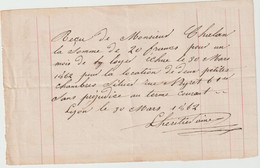 Reçu de Monsieur Chretien
la somme de 20 francs pour un
mois de loyer échu le 30 Mars
1862 pour la location de deux petites
chambres
sans préjudice au terme courant
Lyon le 30 Mars 1862